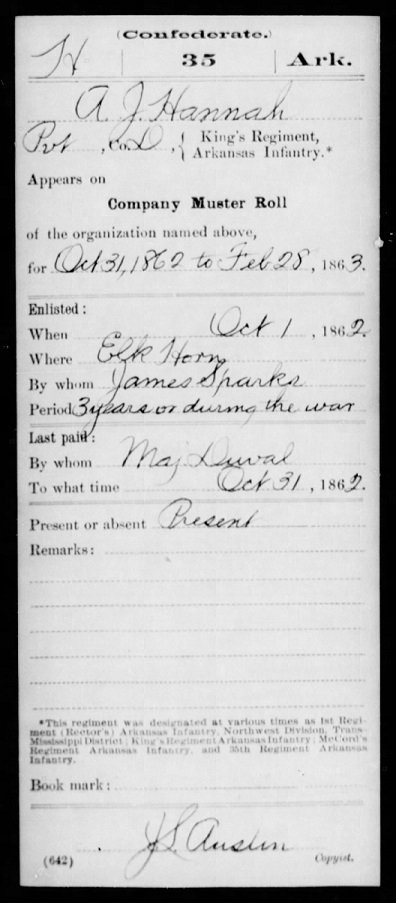 (Confederate.)
H | 35 | Ark.
A. J. Hannah
Pvt, Co. D, { King's Regiment,
Arkansas Infantry.*
Appears on
Company Muster Roll
of the organization named above,
for Oct 31, 1862 to Feb 28, 1863.
Enlisted:
When Oct 1, 1862.
Where Elk Horn
By whom James Sparks
Period 3 years or during the war
Last paid:
By whom Maj Duval
To what time Oct 31, 1862.
Present or absent Present
Remarks:
*This regiment was designated at various times as 1st Regi-
ment (Rector's) Arkansas Infantry, Northwest Division, Trans-
Mississippi District; King's Regiment Arkansas Infantry; McCord's
Regiment Arkansas Infantry, and 35th Regiment Arkansas
Infantry.
Book mark:
J. S. Austin
(642) Copyist.